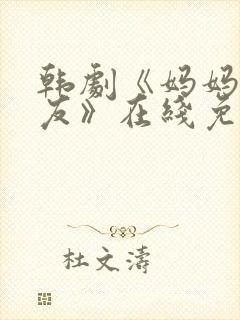 韩剧《妈妈
友》在线免
杜文涛